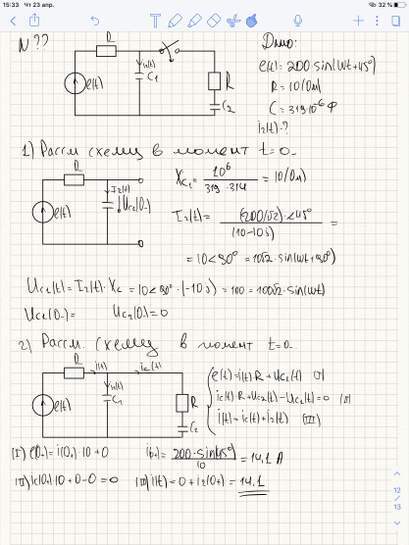 15:33 Чт 23 апр.
32 %
N ??
Дано:
e(t) = 200·sin(ωt+45°)
R = 10(Ом)
C = 319·10⁻⁶ Ф
i₂(t)-?
R
e(t)
i₂(t)
C₁
R
C₂
1) Рассм схему в момент t=0₋
R
e(t)
I₂(t)
Uc₁(0₋)
Xc₁ = 10⁶ / 319·314 = 10(Ом)
I₂(t) = (200/√2)∠45° / (10-10j) =
= 10∠90° = 10√2·sin(ωt+90°)
Uc₁(t) = I₂(t)·Xc = 10∠90°·(-10j) = 100 = 100√2·sin(ωt)
Uc₁(0₋) = Uc₂(0₋) = 0
2) Рассм. схему в момент t=0₊
R
i(t)
iс(t)
e(t)
i₂(t)
C₁
R
C₂
e(t) = i(t)·R + Uc₁(t) (I)
iс(t)·R + Uc₂(t) - Uc₁(t) = 0 (II)
i(t) = iс(t) + i₂(t) (III)
(I) e(0₊) = i(0₊)·10 + 0
i(0₊) = 200·sin45° / 10 = 14,1 А
(II) iс(0₊)·10 + 0 - 0 = 0
(III) i(t) = 0 + i₂(0₊) = 14,1
12
13